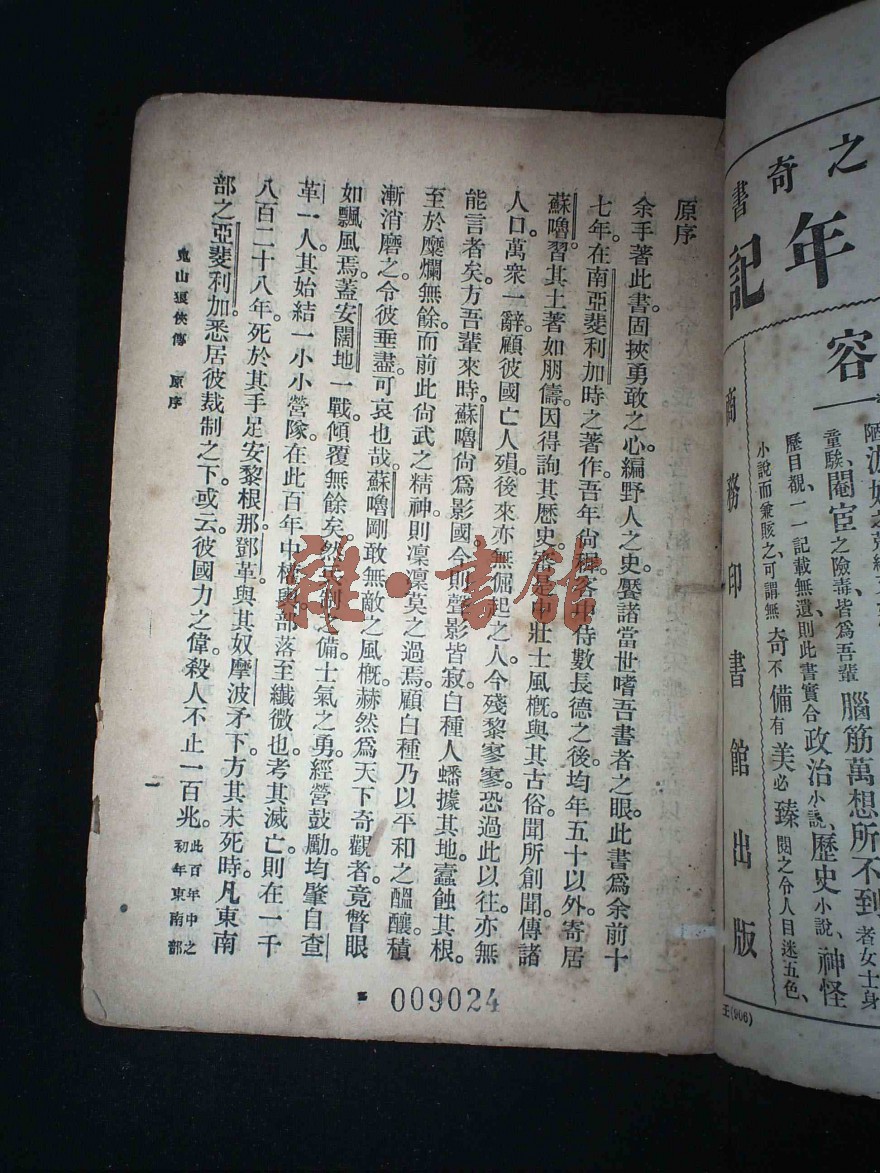 之奇書
年記
容一
商務印書館出版
童騃、閹宦之險毒皆爲吾輩腦筋萬想所不到者女士身
歷目覩一一記載無遺則此書實合政治小說、歷史小說、神怪
小說而兼賅之、可謂無奇不備有美必臻閱之令人目迷五色、
王(906)
原序
余手著此書。固挾勇敢之心。編野人之史。饜諸當世嗜吾書者之眼。此書爲余前十
七年。在南亞斐利加時之著作。吾年尙穉。客中侍數長德之後。均年五十以外。寄居
蘇嚕。習其土著如朋儔。因得詢其歷史。審是中壯士風概。與其古俗。聞所創聞。傳諸
人口。萬衆一辭。顧彼國亡人殞。後來亦無倔起之人。今殘黎寥寥。恐過此以往。亦無
能言者矣。方吾輩來時。蘇嚕尙爲影國。今則聲影皆寂。白種人蟠據其地。蠹蝕其根。
至於糜爛無餘。而前此尙武之精神。則凜凜莫之過焉。顧白種乃以平和之醞釀。積
漸消磨之。令彼垂盡。可哀也哉。蘇嚕剛敢無敵之風概。赫然爲天下奇觀。者竟瞥眼
如飄風焉。蓋安闊地一戰。傾覆無餘矣。然天制之備。士氣之勇。經營鼓勵。均肇自查
革一人。其始結一小小營隊。在此百年中。棧與部落至纖微也。考其滅亡。則在一千
八百二十八年。死於其手足安黎根那鄧革。與其奴摩波矛下。方其未死時。凡東南
部之亞斐利加。悉居彼裁制之下。或云。彼國力之偉。殺人不止一百兆。此百年中之初年東南部
鬼山狼俠傳 原序
一
009024
雜·書館